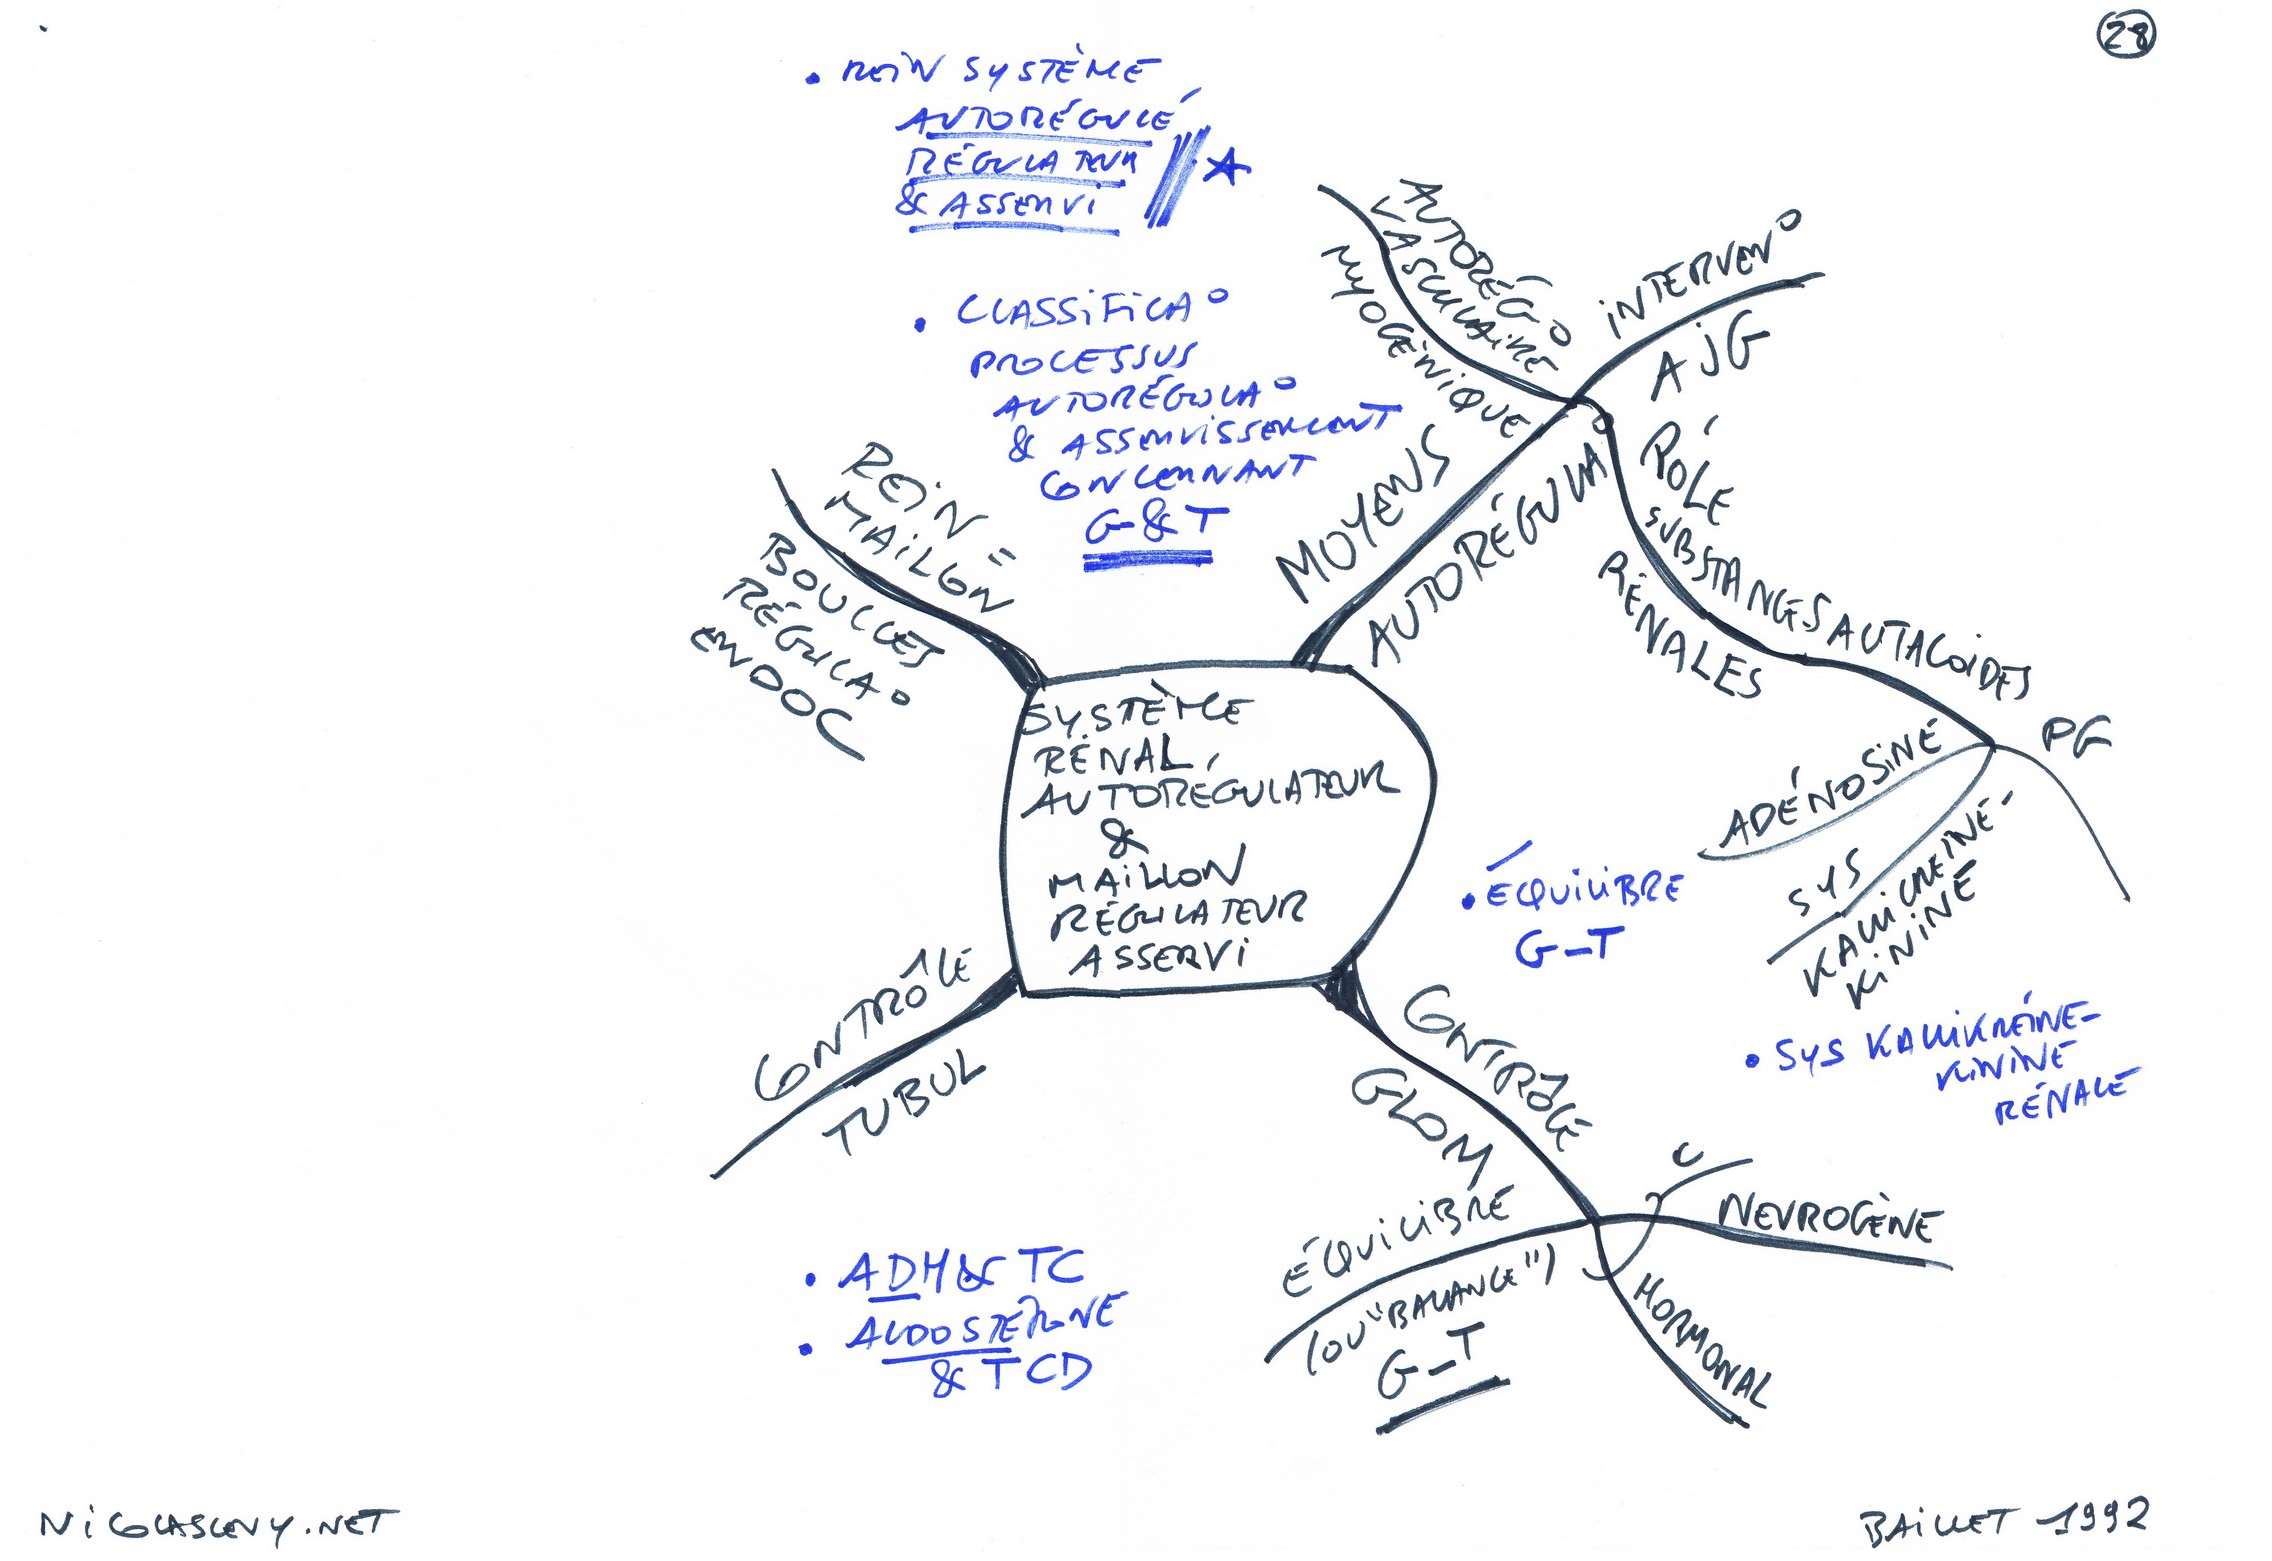 28
• REIN SYSTÈME
AUTORÉGULÉ
RÉGULATEUR
& ASSERVI
• CLASSIFICA°
PROCESSUS
AUTORÉGULA°
& ASSERVISSEMENT
CONCERNANT
G & T
REIN =
MAILLON
BOUCLES
RÉGULA°
ENDOC
MOYENS
AUTORÉGULA°
AUTORÉG°
VASCULAIRE
MYOGÉNIQUE
INTERVEN°
AJG
RÔLE
SUBSTANCES AUTACOÏDES
RÉNALES
PG
ADÉNOSINE
SYS
KALLICRÉINE-
KININE
SYSTÈME
RÉNAL,
AUTORÉGULATEUR
&
MAILLON
RÉGULATEUR
ASSERVI
• ÉQUILIBRE
G-T
• SYS KALLIKRÉINE-
KININE
RÉNALE
CONTRÔLE
TUBUL
CONTRÔLE
GLOM
NEUROGÈNE
HORMONAL
ÉQUILIBRE
(OU "BALANCE")
G-T
• ADH & TC
• ALDOSTÉRONE
& TCD
NICOLASLEVY.NET
BAILLET 1992